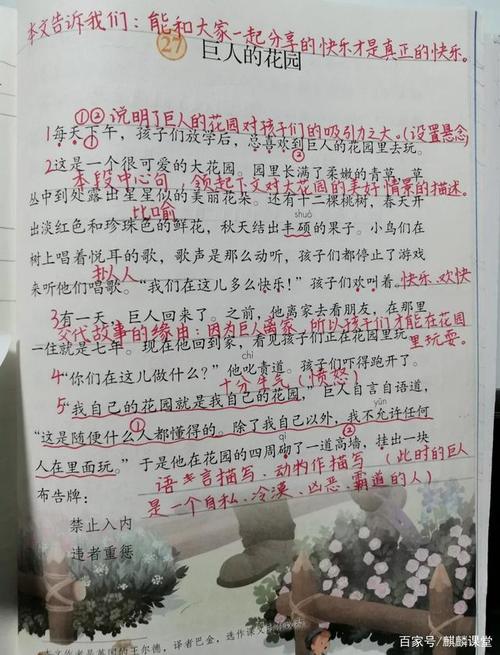 本文告诉我们：能和大家一起分享的快乐才是真正的快乐。
27 巨人的花园
①②说明了巨人的花园对孩子们的吸引力之大。(设置悬念)
1每天下午，孩子们放学后，总喜欢到巨人的花园里去玩。
②
2这是一个很可爱的大花园。园里长满了柔嫩的青草，草
本段中心句，领起下文对大花园的美好情景的描述。
丛中到处露出星星似的美丽花朵。还有十二棵桃树，春天开
比喻
shuò
出淡红色和珍珠色的鲜花，秋天结出丰硕的果子。小鸟们在
树上唱着悦耳的歌，歌声是那么动听，孩子们都停止了游戏
来听他们唱歌。“我们在这儿多么快乐！”孩子们欢叫着。快乐、欢快
3有一天，巨人回来了。之前，他离家去看朋友，在那里
交代故事的缘由：因为巨人离家，所以孩子们才能在花园
一住就是七年。现在他回到家，看见孩子们正在花园里玩。
里玩耍。
chì
4“你们在这儿做什么？”他叱责道。孩子们吓得跑开了。
十分生气（愤怒）
5“我自己的花园就是我自己的花园，”巨人自言自语道，
① yǔn
“这是随便什么人都懂得的。除了我自己以外，我不允许任何
qì ②
人在里面玩。”于是他在花园的四周砌了一道高墙，挂出一块
语言描写、动作描写（此时的巨人
布告牌：
是一个自私、冷漠、凶恶、霸道的人）
禁止入内
违者重惩
本文作者是英国的王尔德，译者巴金，选作课文时有改动。
百家号/麒麟课堂